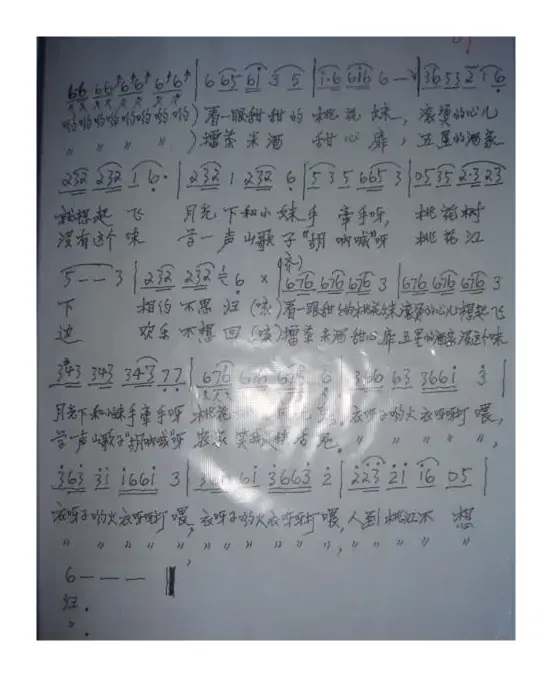 66 66 6 6 6 6 | 6 65 6i 3 5 | i·6 6i6 6 — | 36 53 2 1 6
哟哟哟哟哟哟哟哟)看一眼甜甜的 桃花妹, 滚烫的心儿
〃 〃 〃 〃 )擂茶米酒 甜心扉, 五星的酒家
232 232 1 6· | 232 1 232 6 | 5 3 5 665 3 | 05 35 2·3 23
就想起飞 月光下和小妹手 牵手呀, 桃花树
没有这个味 学一声山歌子"胡呐喊"呀 桃花江
5 — — 3 | 232 232 6 × | 676 676 676 3 | 676 676 676 3
下 相约不思 (咳)看一眼甜的桃花妹滚烫的心儿想起飞
边 欢乐不想回 (咳)擂茶米酒甜心扉五星的酒家没这个味
343 343 343 77 | 676 676 676 6 | 366 63 366i 3
月光下和小妹手牵手呀 桃花 衣呀子哟火衣呀呀打喂,
学一声山歌子"胡呐喊"呀 〃 〃 〃 〃,
363 3i i66i 3 | 36i 6i 3663 2 | 223 2i i6 05 |
衣呀子哟火衣呀呀打喂, 衣呀子哟火衣呀呀打喂, 人到桃江不 想
〃 〃 〃 〃 〃 〃 〃, 〃 〃 〃 〃 〃 〃 〃 〃 〃 〃
6 — — — ‖
〃.